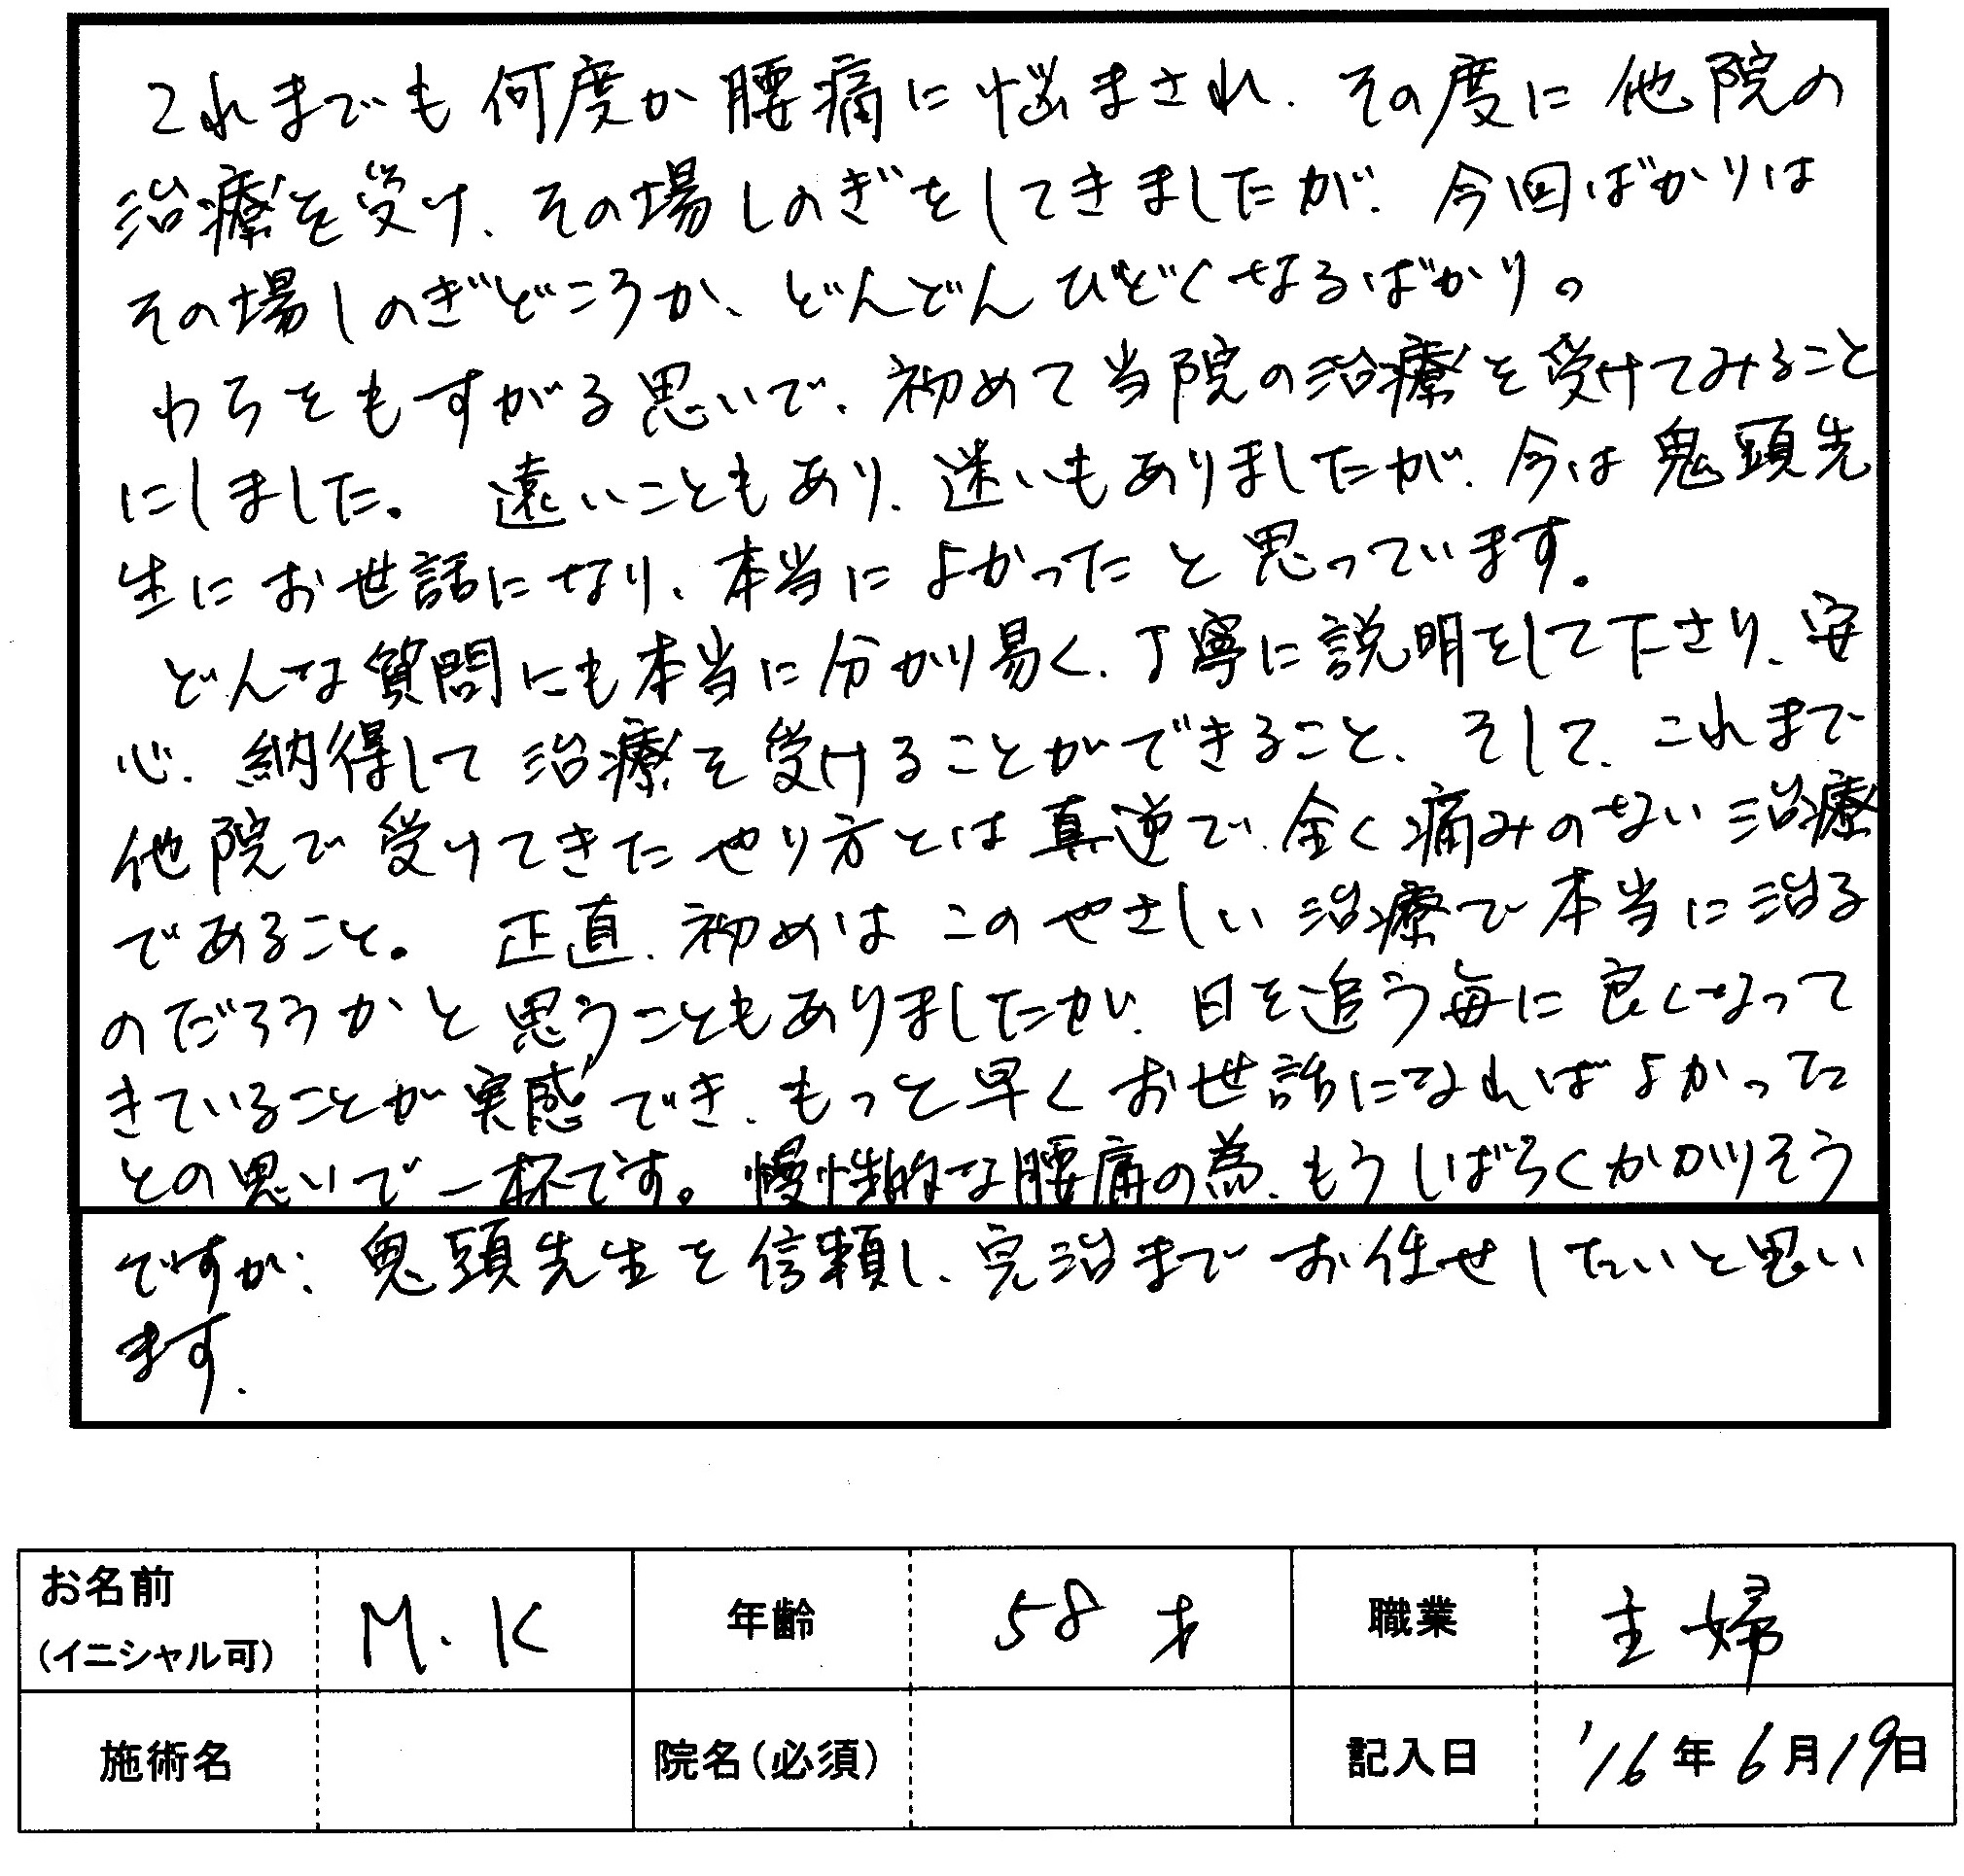 これまでも何度か腰痛に悩まされ、その度に他院の
治療を受け、その場しのぎをしてきましたが、今回ばかりは
その場しのぎどころか、どんどんひどくなるばかり。
わらをもすがる思いで、初めて当院の治療を受けてみること
にしました。遠いこともあり、迷いもありましたが、今は鬼頭先
生にお世話になり、本当によかったと思っています。
どんな質問にも本当に分かり易く、丁寧に説明をして下さり、安
心、納得して治療を受けることができること、そして、これまで
他院で受けてきたやり方とは真逆で、全く痛みのない治療
であること。正直、初めはこのやさしい治療で本当に治る
のだろうかと思うこともありましたが、日を追う毎に良くなって
きていることが実感でき、もっと早くお世話になればよかった
との思いで一杯です。慢性的な腰痛の為、もうしばらくかかりそう
ですが、鬼頭先生を信頼し、完治までお任せしたいと思い
ます。
お名前 M.K 年齢 58才 職業 主婦
(イニシャル可)
施術名 院名(必須) 記入日 '16年6月19日